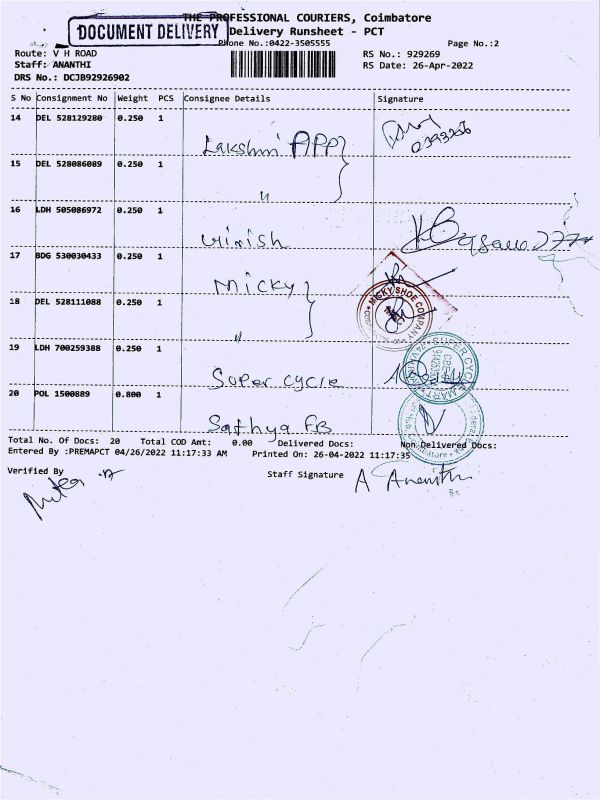 THE PROFESSIONAL COURIERS, Coimbatore
DOCUMENT DELIVERY
Delivery Runsheet - PCT
Phone No.:0422-3505555
Page No.:2
Route: V H ROAD
RS No.: 929269
Staff: ANANTHI
RS Date: 26-Apr-2022
DRS No.: DCJB92926902
S No Consignment No Weight PCS Consignee Details Signature
14 DEL 528129280 0.250 1
Lakshmi APP
15 DEL 528086089 0.250 1
"
16 LDH 505086972 0.250 1
Girish
17 BDG 530030433 0.250 1
Micky
MICKY SHOE COMPANY
18 DEL 528111088 0.250 1
"
19 LDH 700259388 0.250 1
Super cycle
SUPER CYCLE MART
20 POL 1500889 0.800 1
Sathya FB
Total No. Of Docs: 20 Total COD Amt: 0.00 Delivered Docs: Non Delivered Docs:
Entered By :PREMAPCT 04/26/2022 11:17:33 AM Printed On: 26-04-2022 11:17:35
Verified By Staff Signature A Ananthi